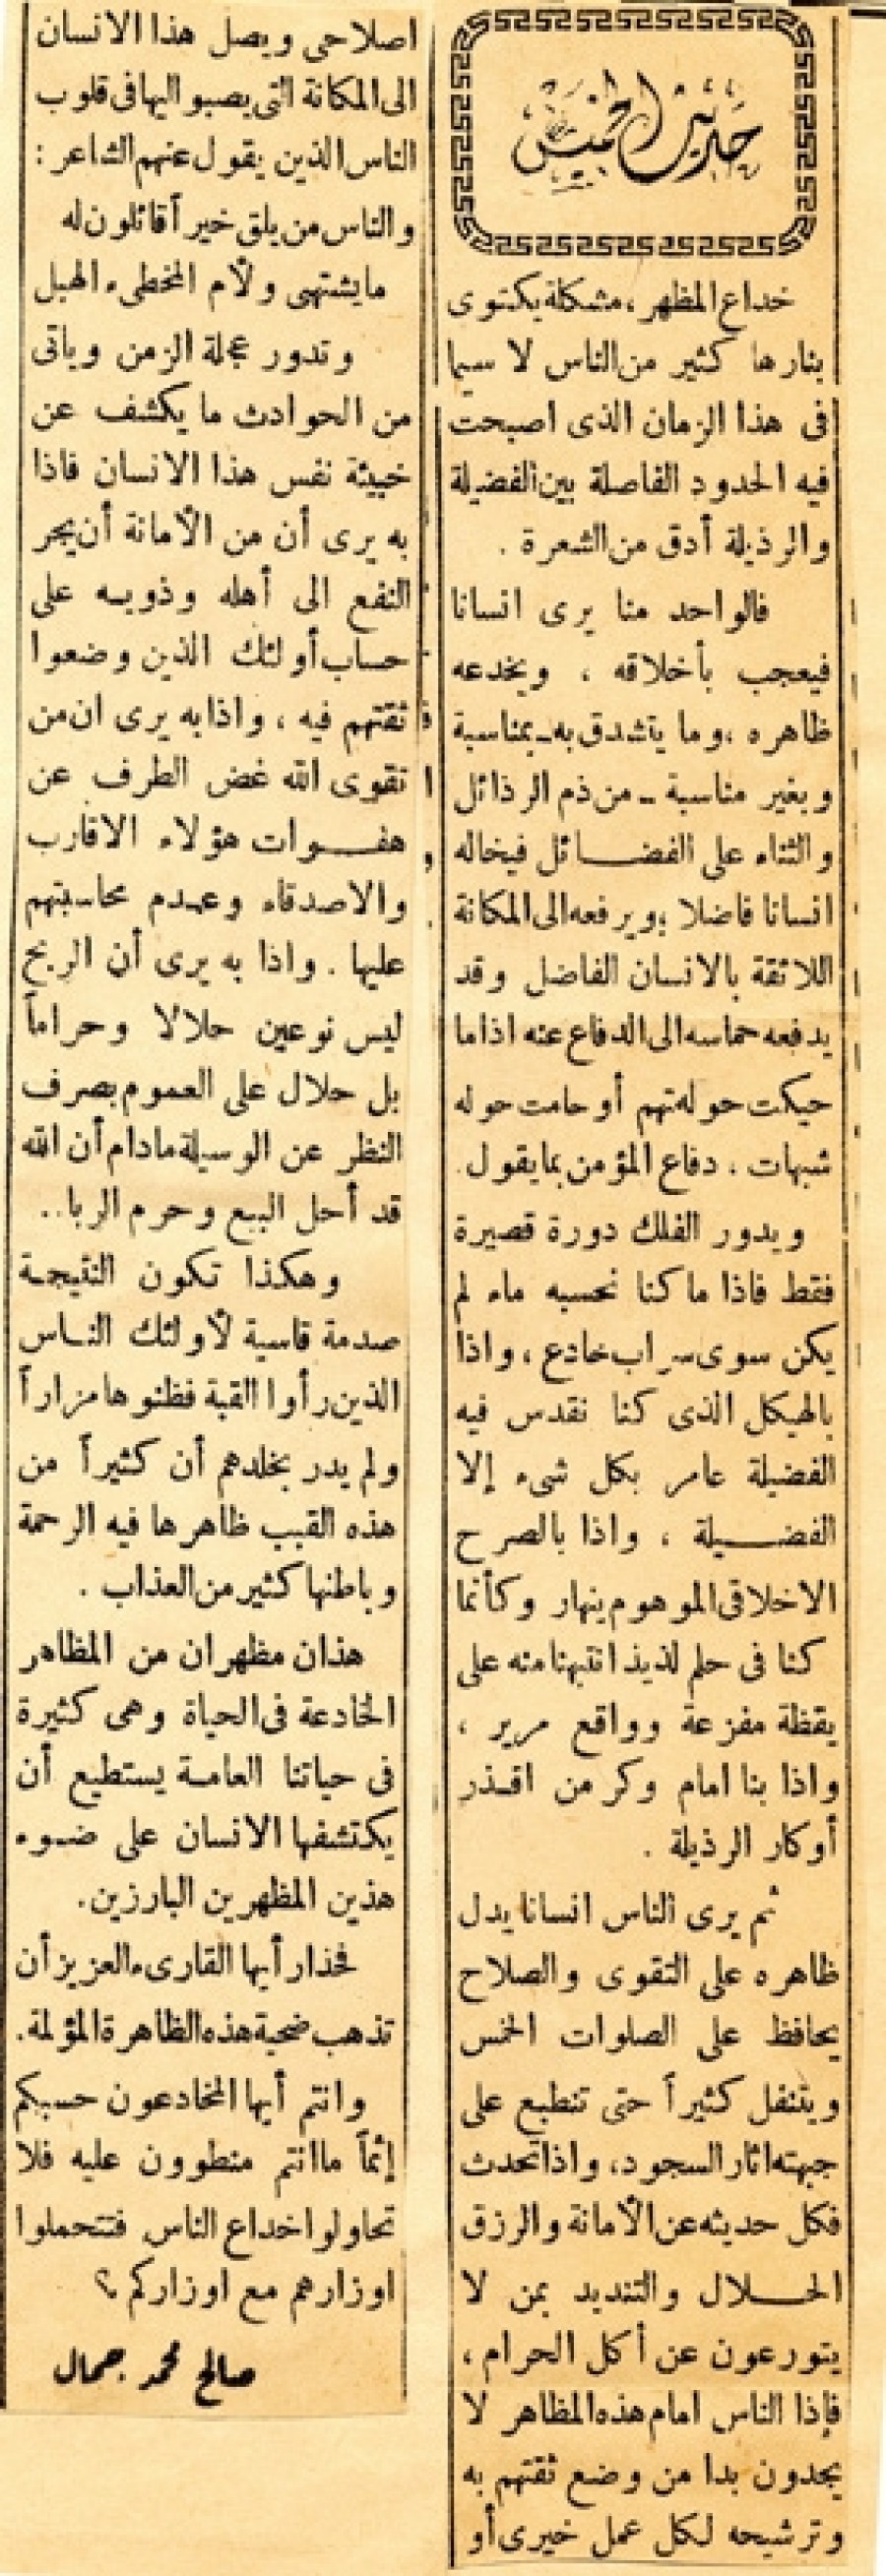 حديث الخميس
خداع المظهر، مشكلة يكتوى
بنارها كثير من الناس لا سيما
فى هذا الزمان الذى اصبحت
فيه الحدود الفاصلة بين الفضيلة
والرذيلة أدق من الشعرة .
فالواحد منا يرى انسانا
فيعجب بأخلاقه ، ويخدعه
ظاهره ،وما يتشدق به ـ بمناسبة
وبغير مناسبة ـ من ذم الرذائل
والثناء على الفضــائل فيخاله
انسانا فاضلا ،ويرفعه الى المكانة
اللائقة بالانسان الفاضل وقد
يدفعه حماسه الى الدفاع عنه اذاما
حيكت حوله تهم أو حامت حوله
شبهات ، دفاع المؤمن بما يقول.
ويدور الفلك دورة قصيرة
فقط فاذا ما كنا نحسبه ماء لم
يكن سوى سراب خادع ، واذا
بالهيكل الذى كنا نقدس فيه
الفضيلة عامر بكل شىء إلا
الفضــيلة ، واذا بالصرح
الاخلاقى الموهوم ينهار وكأنما
كنا فى حلم لذيذ انتبهنا منه على
يقظة مفزعة وواقع مرير ،
واذا بنا امام وكر من اقــذر
أوكار الرذيلة .
ثم يرى الناس انسانا يدل
ظاهره على التقوى والصلاح
يحافظ على الصلوات الخمس
ويتنفل كثيراً حتى تنطبع على
جبهته اثار السجود، واذا تحدث
فكل حديثه عن الأمانة والرزق
الحــلال والتنديد بمن لا
يتورعون عن أكل الحرام ،
فإذا الناس امام هذه المظاهر لا
يجدون بدا من وضع ثقتهم به
وترشيحه لكل عمل خيرى أو
اصلاحى ويصل هذا الانسان
الى المكانة التى يصبو اليها فى قلوب
الناس الذين يقول عنهم الشاعر :
والناس من يلق خيراً قائلون له
ما يشتهى ولأم المخطىء الهبل
وتدور عجلة الزمن ويأتى
من الحوادث ما يكشف عن
خبيئة نفس هذا الانسان فاذا
به يرى أن من الأمانة أن يجر
النفع الى أهله وذويــه على
حساب أولئك الذين وضعوا
ثقتهم فيه ، واذا به يرى ان من
تقوى الله غض الطرف عن
هفــوات هؤلاء الاقارب
والاصدقاء وعــدم محاسبتهم
عليها . واذا به يرى أن الربح
ليس نوعين حلالا وحراماً
بل حلال على العموم بصرف
النظر عن الوسيلة مادام أن الله
قد أحل البيع وحرم الربا..
وهكذا تكون النتيجــة
صدمة قاسية لأولئك النــاس
الذين رأوا القبة فظنوها مزاراً
ولم يدر بخلدهم أن كثيراً من
هذه القبب ظاهرها فيه الرحمة
وباطنها كثير من العذاب .
هذان مظهران من المظاهر
الخادعة فى الحياة وهى كثيرة
فى حياتنا العامــة يستطيع أن
يكتشفها الانسان على ضــوء
هذين المظهرين البارزين.
فحذار أيها القارىء العزيز أن
تذهب ضحية هذه الظاهرة المؤلمة.
وانتم أيها المخادعون حسبكم
إثماً ما انتم منطوون عليه فلا
تحاولوا خداع الناس فتتحملوا
اوزارهم مع اوزاركم ؟
صالح محمد جمال